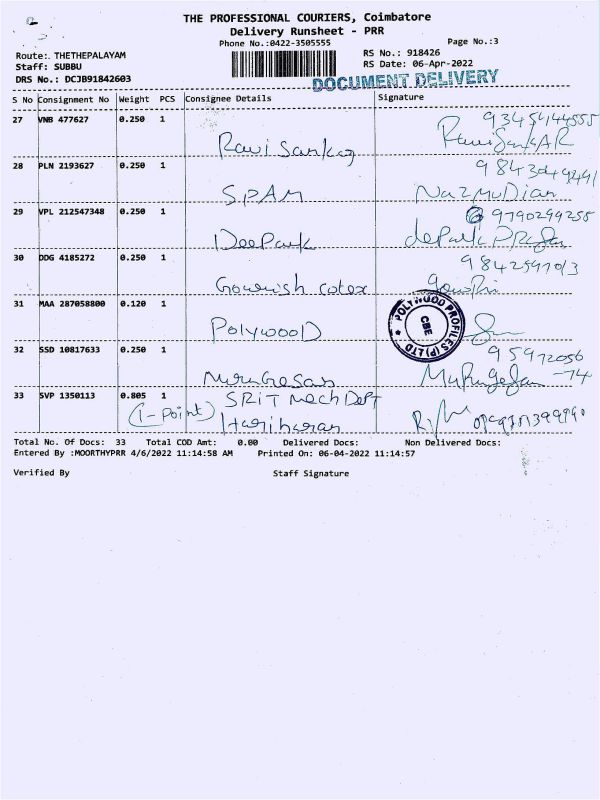 THE PROFESSIONAL COURIERS, Coimbatore
Delivery Runsheet - PRR
Phone No.:0422-3505555
Page No.:3
Route: THETHEPALAYAM
RS No.: 918426
Staff: SUBBU
RS Date: 06-Apr-2022
DRS No.: DCJB91842603
DOCUMENT DELIVERY
S No Consignment No Weight PCS Consignee Details Signature
27 VNB 477627 0.250 1 Ravi Sankar
28 PLN 2193627 0.250 1 SPAM
29 VPL 212547348 0.250 1 Deepauk 9790299255
30 DDG 4185272 0.250 1 Gowrish cotex
31 MAA 287058800 0.120 1 Polywood
POLYWOOD PROFILES (P) LTD
CBE
32 SSD 10817633 0.250 1 Murugesan Murugesan
33 SVP 1350113 0.805 1 SRIT Mech Dept
(1-Point) Hariharan
Total No. Of Docs: 33 Total COD Amt: 0.00 Delivered Docs: Non Delivered Docs:
Entered By :MOORTHYPRR 4/6/2022 11:14:58 AM Printed On: 06-04-2022 11:14:57
Verified By Staff Signature